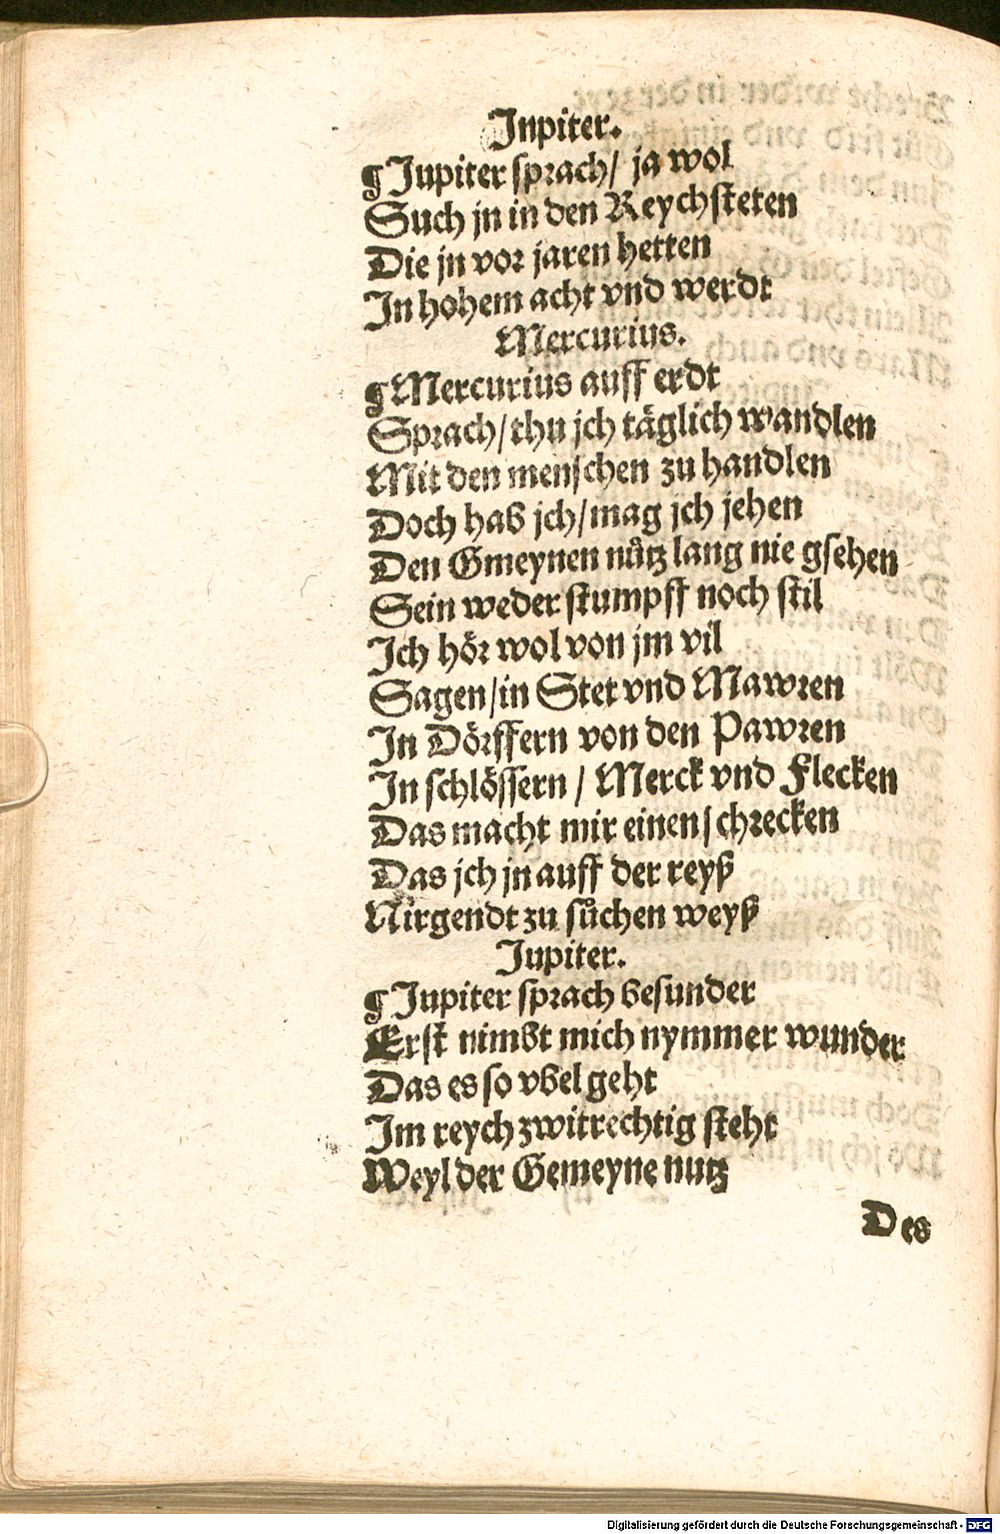 Jnpiter.
¶Jupiter sprach/ ja wol
Such jn in den Reychsteten
Die jn vor jaren hetten
In hohem acht vnd werdt
Mercurius.
¶Mercurius auff erdt
Sprach/thu jch täglich wandlen
Mit den menschen zu handlen
Doch hab jch/mag jch jehen
Den Gmeynen nůtz lang nie gsehen
Sein weder stumpff noch stil
Ich hör wol von jm vil
Sagen/in Stet vnd Mawren
In Dörffern von den Pawren
In schlössern / Merck vnd Flecken
Das macht mir einen schrecken
Das jch jn auff der reyß
Nirgendt zu sůchen weyß
Jupiter.
¶Jupiter sprach besunder
Erst nimbt mich nymmer wunder
Das es so vbel geht
Im reych zwitrechtig steht
Weyl der Gemeyne nutz
Des
Digitalisierung gefördert durch die Deutsche Forschungsgemeinschaft - DFG